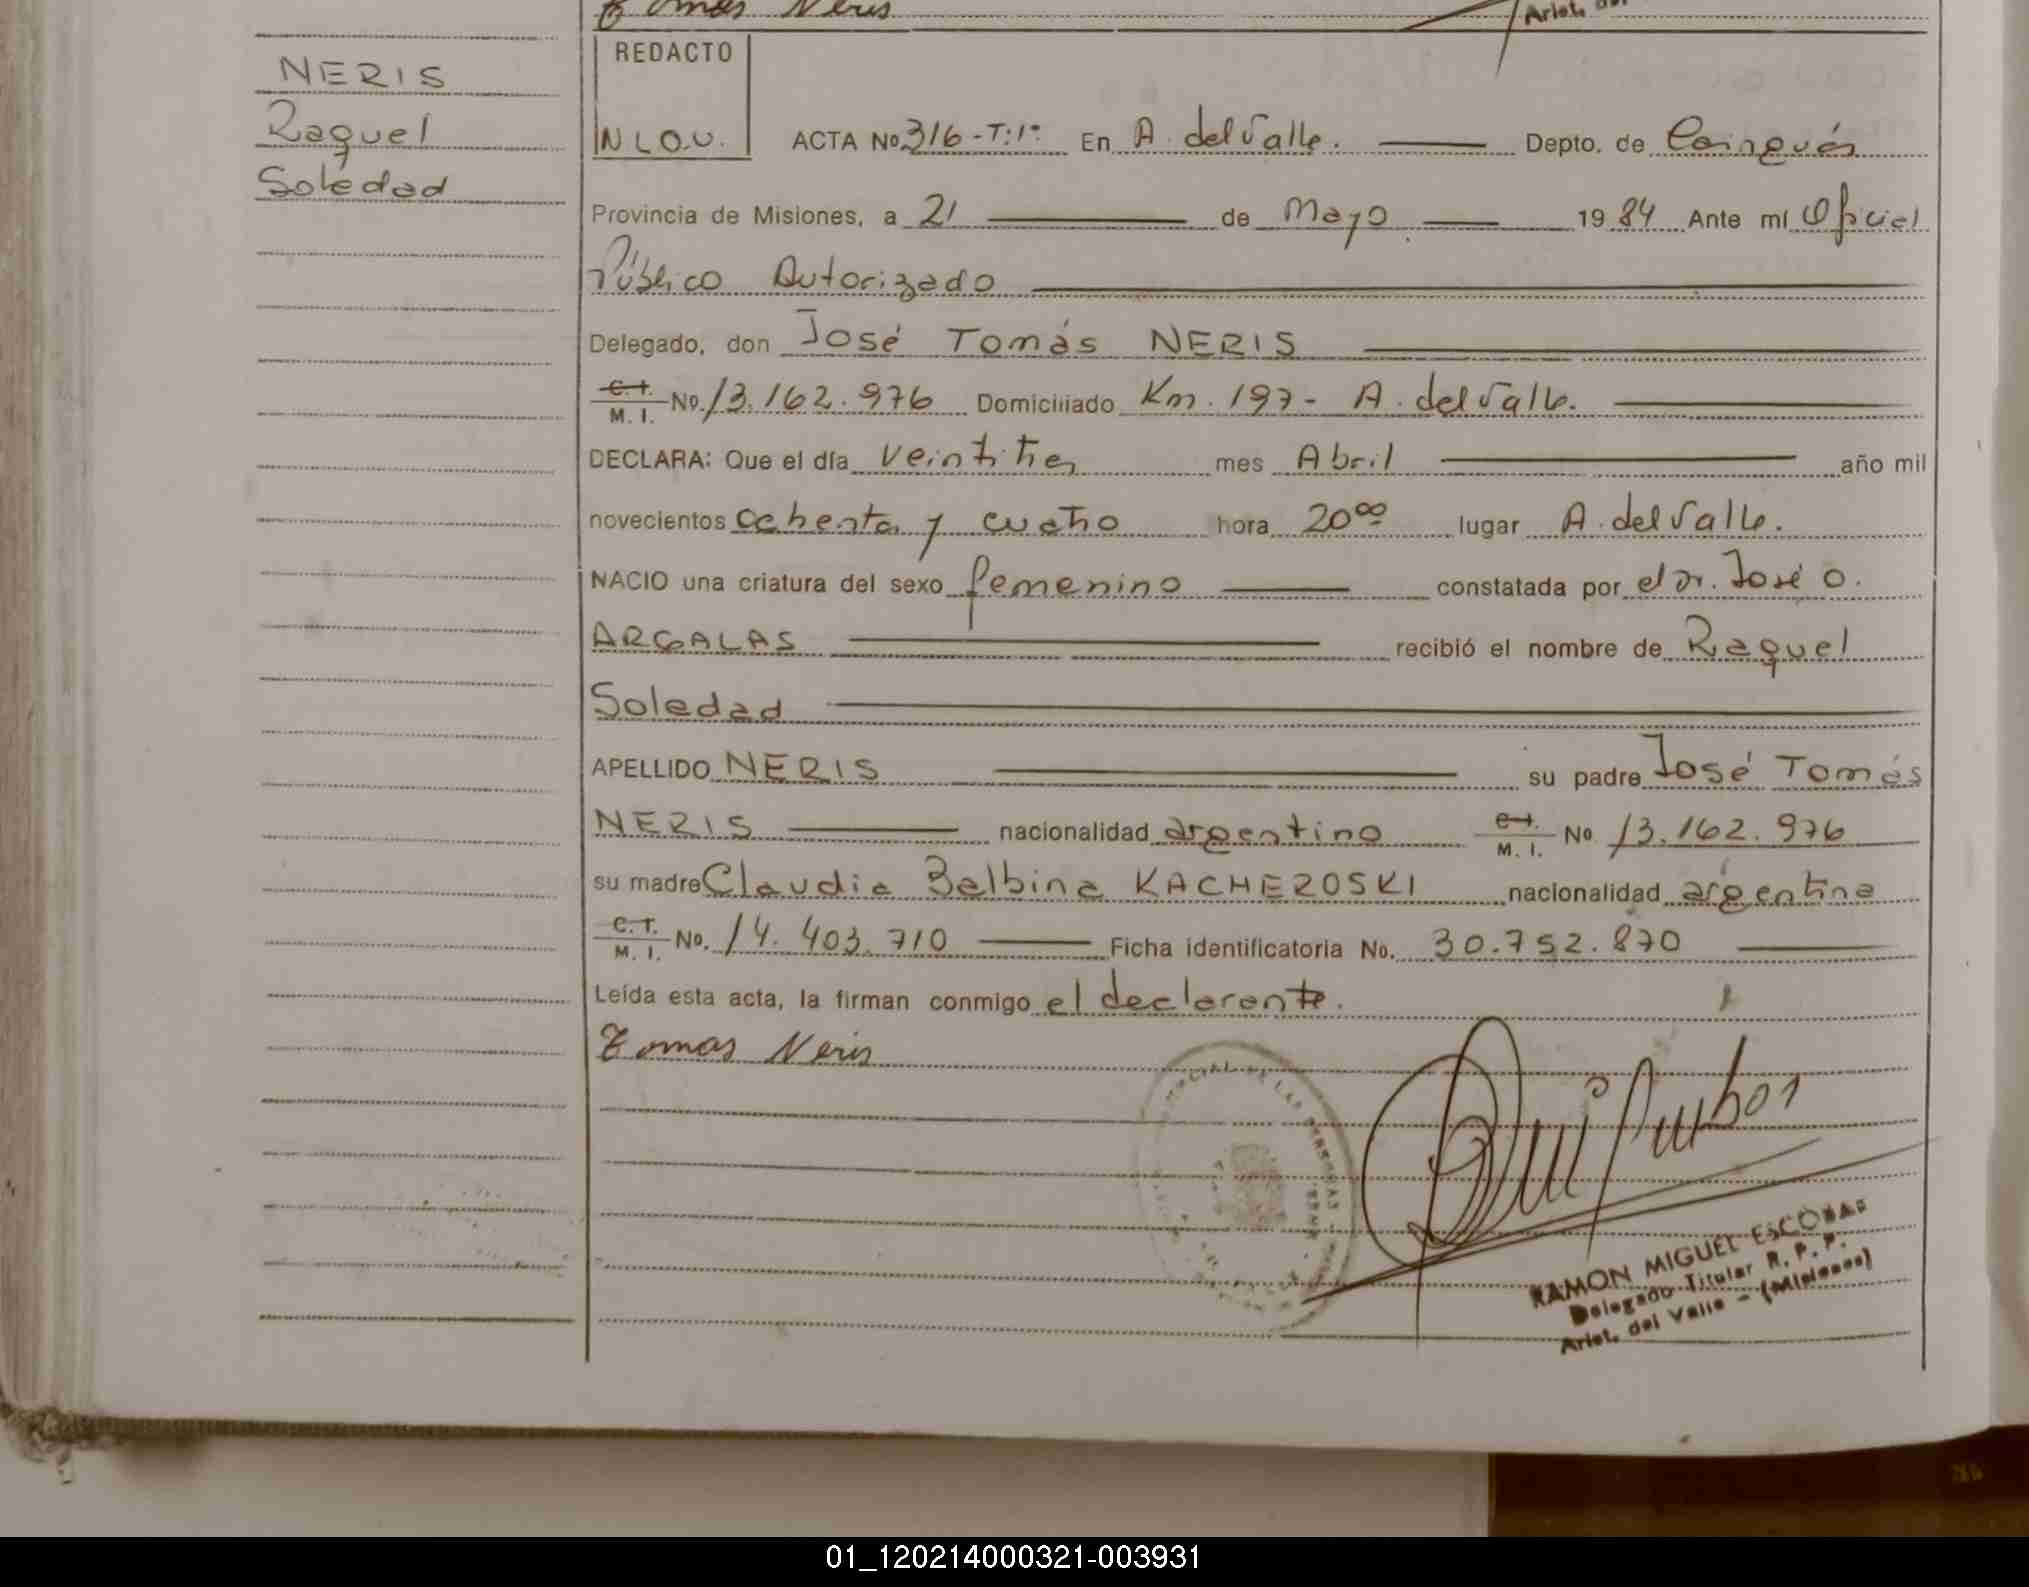 Tomas Neris
Arist. de
NERIS
Raquel
Soledad
REDACTO
N L O.V.
ACTA No. 316-T:1º En A. del Valle. Depto. de Cainguás
Provincia de Misiones, a 21 de Mayo 1984 Ante mí Oficial
Público Autorizado
Delegado, don José Tomás NERIS
C.I. M. I. No. 13.162.976 Domiciliado Km. 197- A. del Valle.
DECLARA: Que el día veintitres mes Abril año mil
novecientos ochenta y cuatro hora 20⁰⁰ lugar A. del Valle.
NACIO una criatura del sexo femenino constatada por el Dr. José O.
ARGALAS recibió el nombre de Raquel
Soledad
APELLIDO NERIS su padre José Tomás
NERIS nacionalidad argentino C.I. M. I. No 13.162.976
su madre Claudia Balbina KACHEROSKI nacionalidad argentina
C.I. M. I. No. 14.403.710 Ficha identificatoria No. 30.752.870
Leída esta acta, la firman conmigo el declarante.
Tomas Neris
DE LAS PERSONAS
RAMON MIGUEL ESCOBAR
Delegado Titular R. P. P.
Arist. del Valle - (Misiones)
01_120214000321-003931